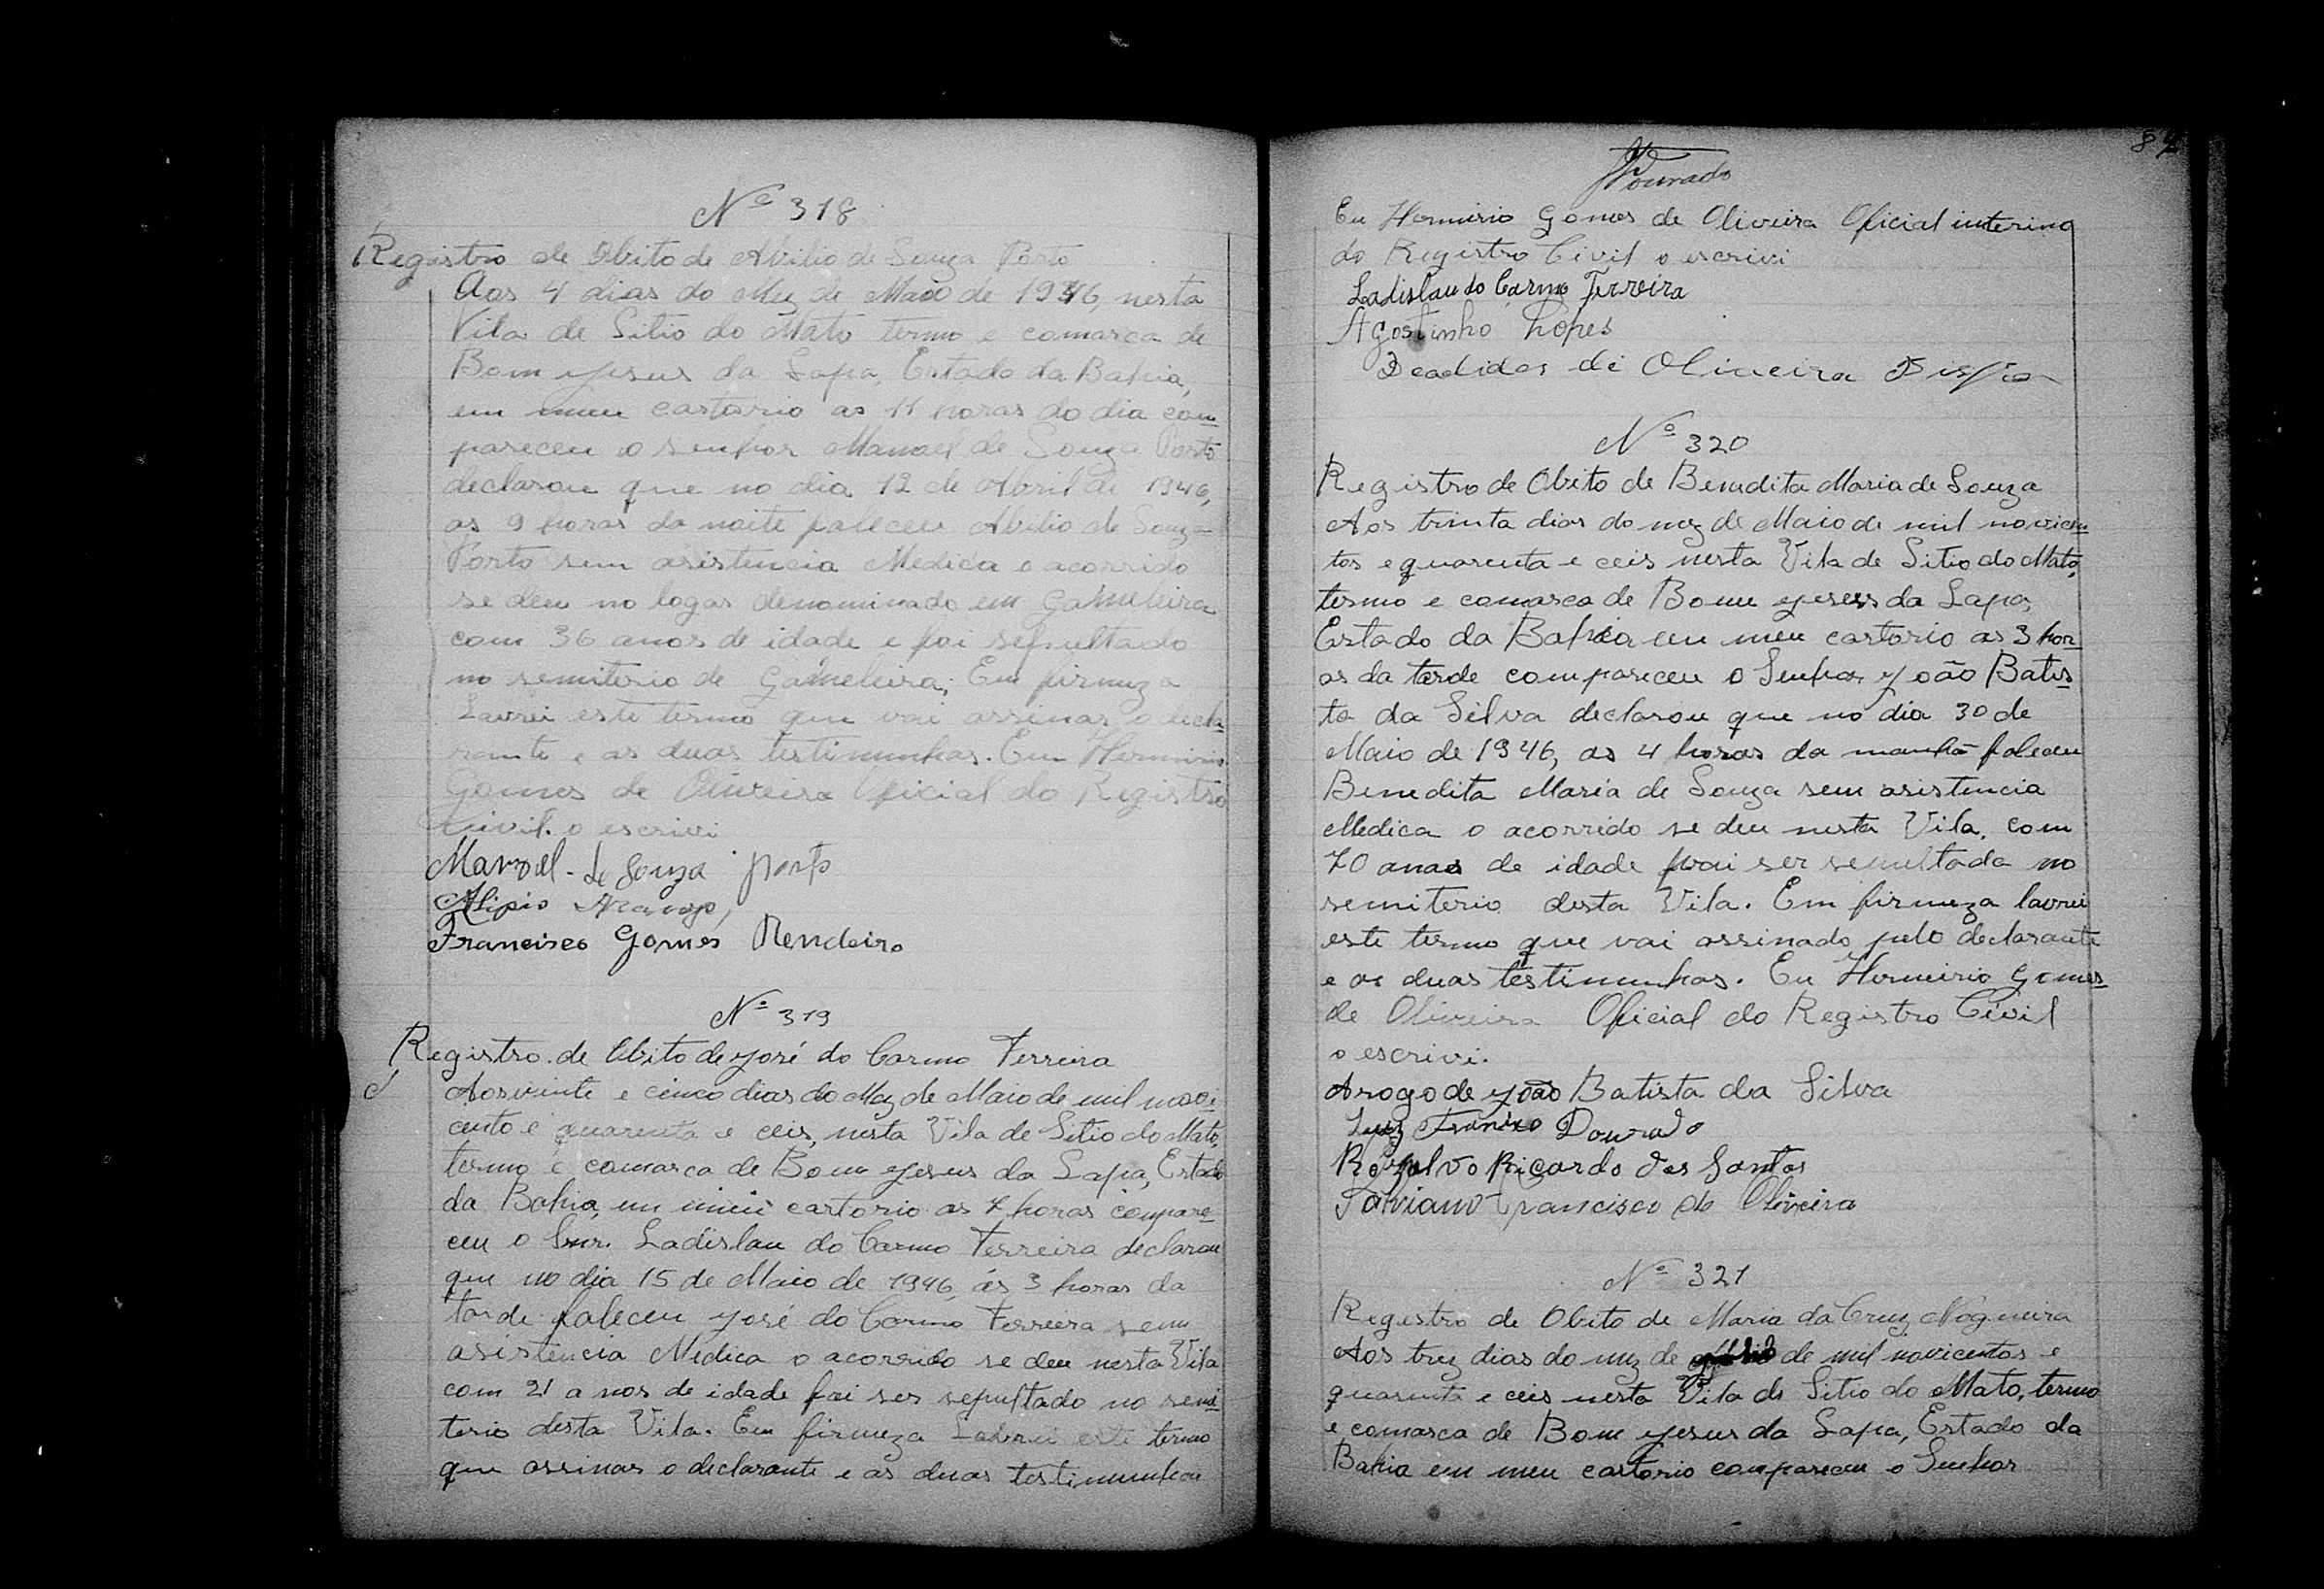 Nº 318
Registro de Obito de Abilio de Souza Porto
Aos 4 dias do Mez de Maio de 1946, nesta
Vila de Sitio do Mato termo e comarca de
Bom Jesus da Lapa, Estado da Bahia,
em meu cartorio as 11 horas do dia com
pareceu o senhor Manoel de Souza Porto
declarou que no dia 12 de Abril de 1946,
as 9 horas da noite faleceu Abilio de Souza
Porto sem asistencia Medica o acorrido
se deu no logar denominado em Gameleira
com 36 anos de idade e foi sepultado
no semiterio de Gameleira; Em firmeza
Lavrei este termo que vai assinar o decla
rante e as duas testimunhas. Eu Herminio
Gomes de Oliveira Oficial do Registro
Civil. o escrivi
Manoel de Souza porto
Alipio Araujo,
Francisco Gomes Mendeiro
Nº 319
Registro de Obito de José do Carmo Ferreira
Aos vinte e cinco dias do Mez de Maio de mil novi
cento e quarenta e ceis, nesta Vila de Sitio do Mato,
termo e comarca de Bom Jesus da Lapa, Estado
da Bahia, em meu cartorio as 7 horas compare
ceu o Snr. Ladislau do Carmo Ferreira declarou
que no dia 15 de Maio de 1946, ás 3 horas da
tarde faleceu José do Carmo Ferreira sem
asistencia Medica o acorrido se deu nesta Vila
com 21 anos de idade foi ser sepultado no semi
terio desta Vila. Em firmeza Lavrei este termo
que assinar o declarante e as duas testimunhas
84
Dourado
Eu Herminio Gomes de Oliveira Oficial interino
do Registro Civil o escrivi
Ladislau do Carmo Ferreira
Agostinho Lopes
de Oliveira
Nº 320
Registro de Obito de Benedita Maria de Souza
Aos trinta dias do mez de Maio de mil novicen
tos e quarenta e ceis nesta Vila de Sitio do Mato,
termo e comarca de Bom Jesus da Lapa,
Estado da Bahia em meu cartorio as 3 hor
as da tarde compareceu o Senhor João Batis
ta da Silva declarou que no dia 30 de
Maio de 1946, as 4 horas da manhã faleceu
Benedita Maria de Souza sem asistencia
Medica o acorrido se deu nesta Vila, com
70 anos de idade vai ser sepultada no
semiterio desta Vila. Em firmeza lavrei
este termo que vai assinado pelo declarante
e as duas testimunhas. Eu Herminio Gomes
de Oliveira Oficial do Registro Civil
o escrivi.
Arogo de João Batista da Silva
Luiz Dourado
Rozalvo Ricardo dos Santos
Francisco de Oliveira
Nº 321
Registro de Obito de Maria da Cruz Nogueira
Aos trez dias do mez de de mil novicentos e
quarenta e ceis nesta Vila de Sitio do Mato, termo
e comarca de Bom Jesus da Lapa, Estado da
Bahia em meu cartorio compareceu o Senhor